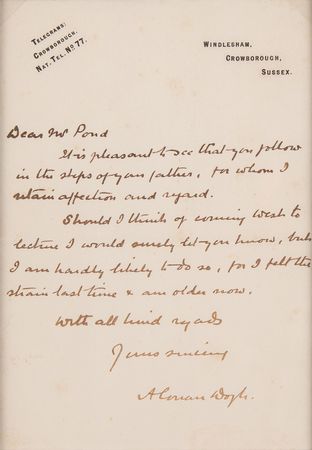 Telegrams:
Crowborough.
Nat. Tel. No 77.
Windlesham,
Crowborough,
Sussex.
Dear Mr Pond
It is pleasant to see that you follow
in the steps of your father, for whom I
retain affection and regard.
Should I think of coming West to
lecture I would surely let you know, but
I am hardly likely to do so, for I felt the
strain last time & am older now.
With all kind regards
Yours sincerely
A Conan Doyle.